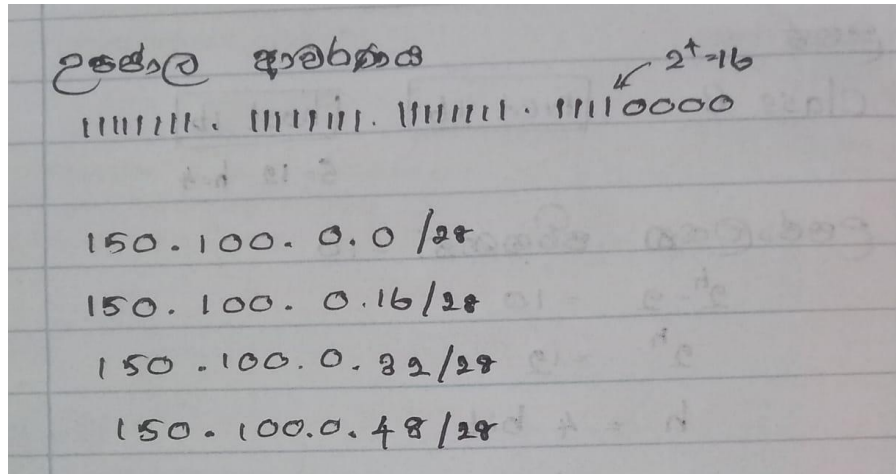 උපජාල ආවරණය
2⁴=16
11111111. 11111111. 11111111. 11110000
150.100.0.0/28
150.100.0.16/28
150.100.0.32/28
150.100.0.48/28